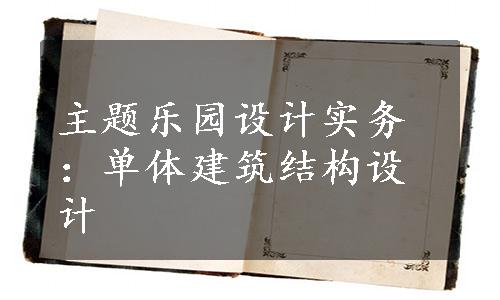 主题乐园设计实务
：单体建筑结构设
计